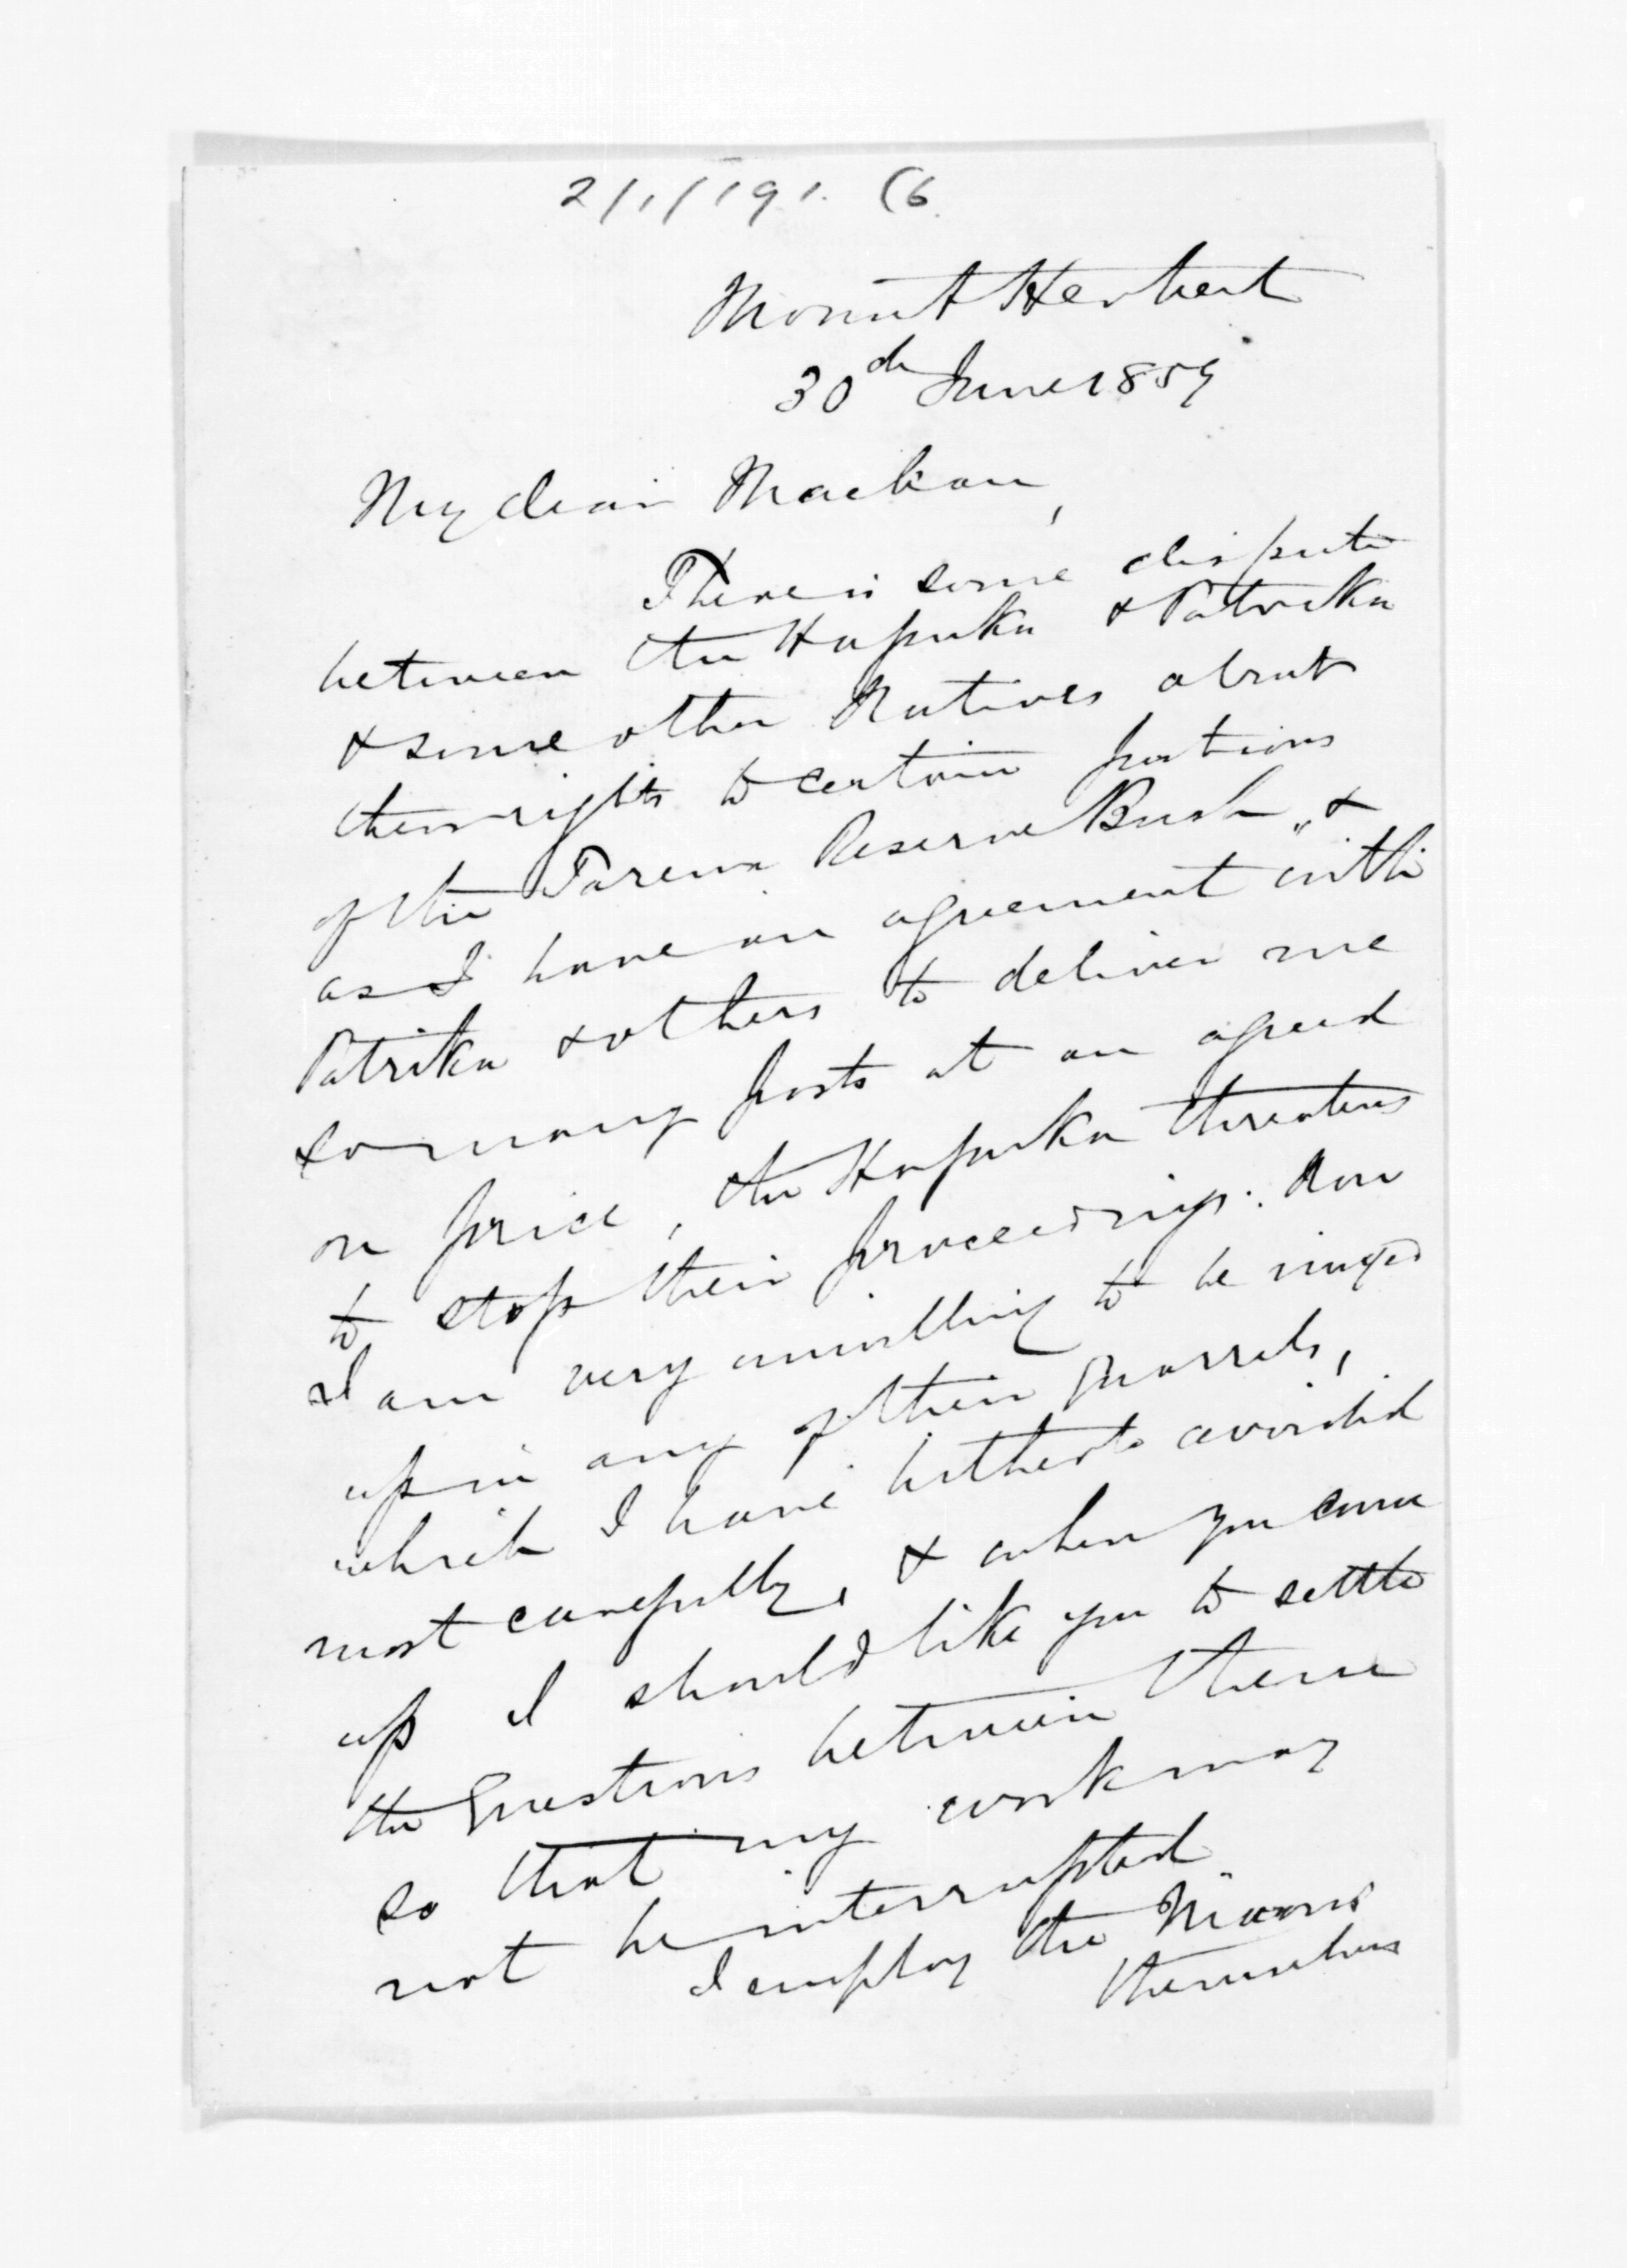 2/1/191. (6
Mount Herbert
30th June 1859
My dear Maclean,
There is some dispute
between the Hapuku & Patrika
& some other Natives about
their rights to certain portions
of the Tarewa Reserve Bush, &
as I have an agreement with
Patrika & others to deliver me
so many posts at an agreed
on price, the Hapuku threatens
to stop their proceedings. Now
I am very unwilling to be mixed
up in any of their quarrels,
which I have hitherto avoided
most carefully, & when you come
up I should like you to settle
the Questions between them
so that my work may
not be interrupted
I employ the Maoris
themselves